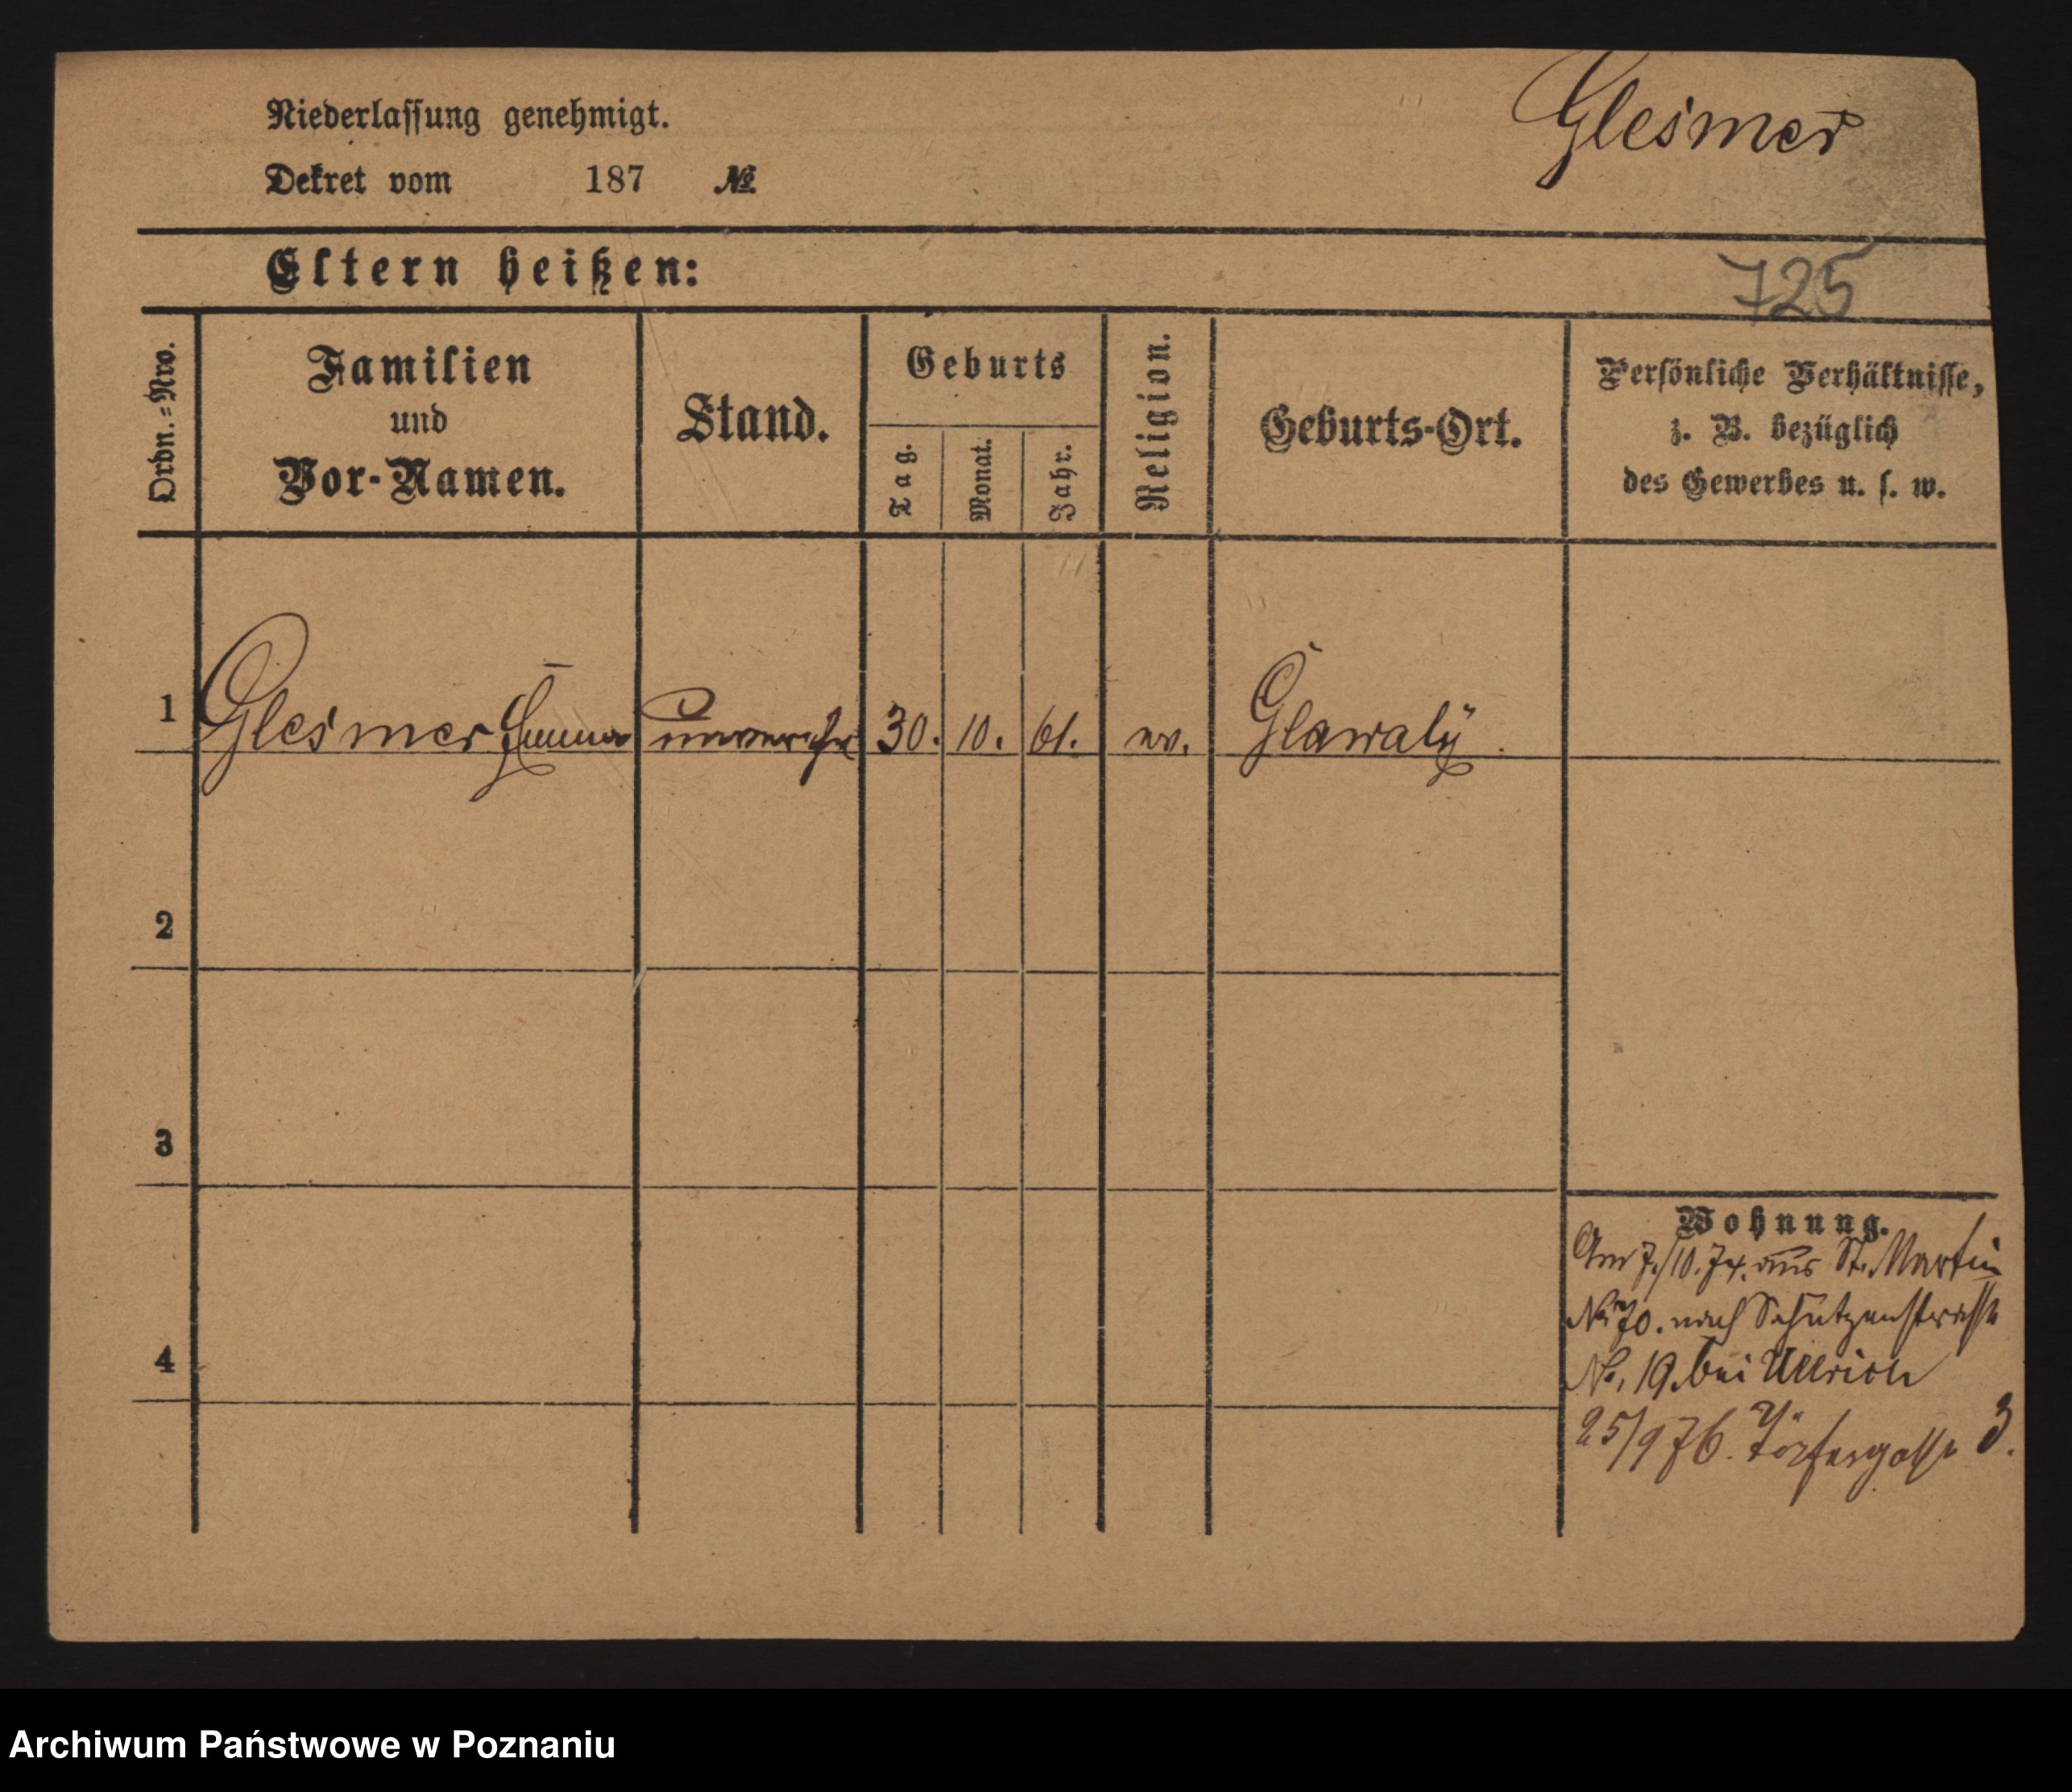 Niederlassung genehmigt.
Dekret vom 187 №
Glesmer
Eltern heißen:
725
Ordn.=Nro.
Familien
und
Vor-Namen.
Stand.
Geburts
Tag.
Monat.
Jahr.
Religion.
Geburts-Ort.
Persönliche Verhältnisse,
z. B. bezüglich
des Gewerbes u. s. w.
1 Glesmer Emma 30. 10. 61. ev.
2
3
4
Wohnung.
St. Martin
No 70. nach Schützenstrasse
No. 19. bei Ullrich
25/9 76. 3.
Archiwum Państwowe w Poznaniu